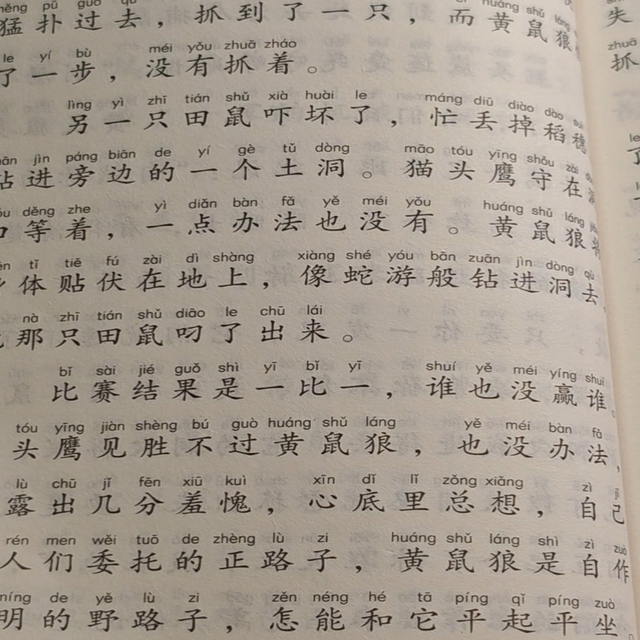 měng pū guò qù zhuā dào le yì zhī ér huáng shǔ láng
猛扑过去，抓到了一只，而黄鼠狼
le yí bù méi yǒu zhuā zháo
了一步，没有抓着。
lìng yì zhī tián shǔ xià huài le máng diū diào dào suì
另一只田鼠吓坏了，忙丢掉稻穗
jìn páng biān de yí gè tǔ dòng māo tóu yīng shǒu zài
钻进旁边的一个土洞。猫头鹰守在
děng zhe yì diǎn bàn fǎ yě méi yǒu huáng shǔ láng
等着，一点办法也没有。黄鼠狼
tǐ tiē fú zài dì shàng xiàng shé yóu bān zuān jìn dòng qù
体贴伏在地上，像蛇游般钻进洞去
nà zhī tián shǔ diāo le chū lái
那只田鼠叼了出来。
bǐ sài jié guǒ shì yī bǐ yī shuí yě méi yíng shuí
比赛结果是一比一，谁也没赢谁。
tóu yīng jiàn shèng bú guò huáng shǔ láng yě méi bàn fǎ
头鹰见胜不过黄鼠狼，也没办法，
lù chū jǐ fēn xiū kuì xīn dǐ lǐ zǒng xiǎng zì jǐ
露出几分羞愧，心底里总想，自己
rén men wěi tuō de zhèng lù zi huáng shǔ láng shì zì zuò
人们委托的正路子，黄鼠狼是自作
míng de yě lù zi zěn néng hé tā píng qǐ píng zuò
明的野路子，怎能和它平起平坐
失
抓